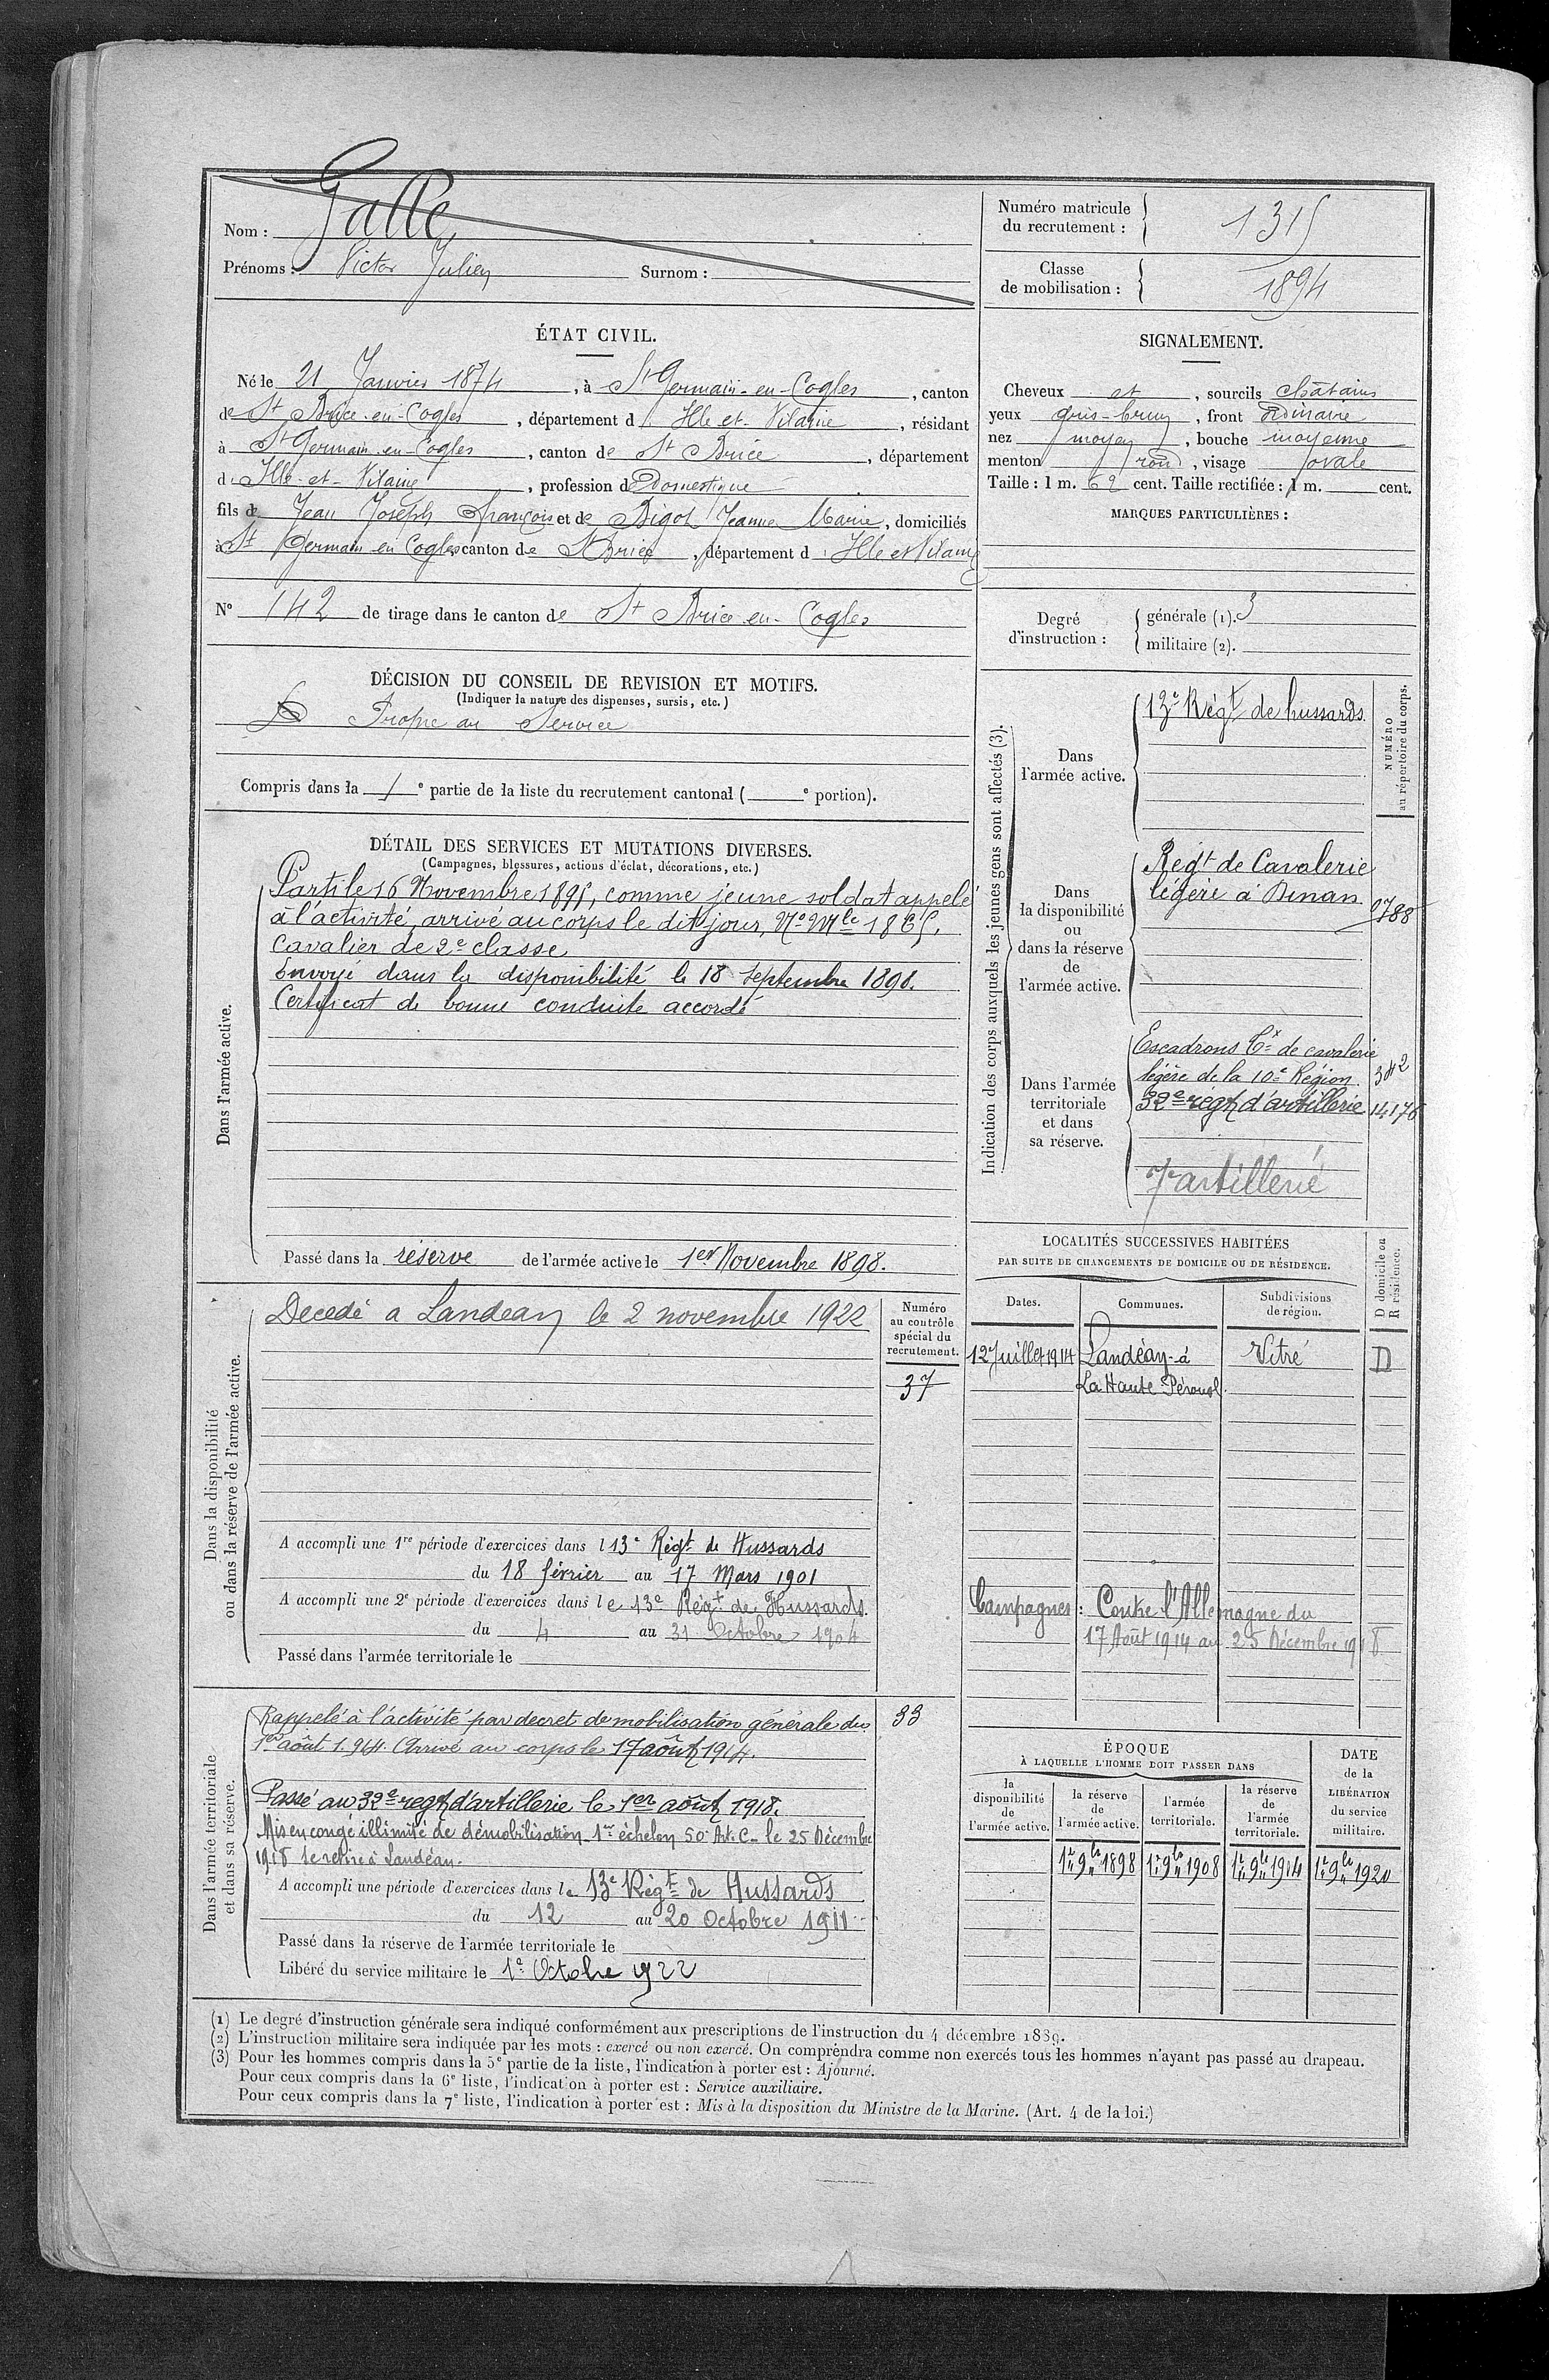 Nom : Gallé
Prénoms : Victor Julien Surnom :
Numéro matricule du recrutement : 1315
Classe de mobilisation : 1894
ÉTAT CIVIL.
Né le 21 Janvier 1874, à St Germain-en-Cogles, canton
de St Brice-en-Cogles, département d'Ille-et-Vilaine, résidant
à St Germain-en-Cogles, canton de St Brice, département
d'Ille-et-Vilaine, profession de Domestique
fils de Jean Joseph François et de Bigot Jeanne Marie, domiciliés
à St Germain en Cogles canton de St Brice, département d'Ille et Vilaine
N° 142 de tirage dans le canton de St Brice-en-Cogles
SIGNALEMENT.
Cheveux et, sourcils châtains
yeux gris-brun, front ordinaire
nez moyen, bouche moyenne
menton rond, visage ovale
Taille : 1 m. 62 cent. Taille rectifiée : 1 m. cent.
MARQUES PARTICULIÈRES :
Degré d'instruction : générale (1). 3
militaire (2).
DÉCISION DU CONSEIL DE REVISION ET MOTIFS.
(Indiquer la nature des dispenses, sursis, etc.)
Propre au Service
Compris dans la 1e partie de la liste du recrutement cantonal ( e portion).
DÉTAIL DES SERVICES ET MUTATIONS DIVERSES.
(Campagnes, blessures, actions d'éclat, décorations, etc.)
Dans l'armée active.
Parti le 16 Novembre 1895, comme jeune soldat appelé
à l'activité, arrivé au corps le dit jour, N° Mle 1865.
Cavalier de 2e classe
Envoyé dans la disponibilité le 18 septembre 1898.
Certificat de bonne conduite accordé
Passé dans la réserve de l'armée active le 1er Novembre 1898.
Indication des corps auxquels les jeunes gens sont affectés (3).
NUMÉRO au répertoire du corps.
Dans l'armée active.
13e Régt de hussards
Dans la disponibilité ou dans la réserve de l'armée active.
Régt de Cavalerie
légère à Dinan 2788
Dans l'armée territoriale et dans sa réserve.
Escadrons Tx de cavalerie
légère de la 10e Région. 342
32e régt d'artillerie 14176
7e artillerie
LOCALITÉS SUCCESSIVES HABITÉES
PAR SUITE DE CHANGEMENTS DE DOMICILE OU DE RÉSIDENCE.
Dates. Communes. Subdivisions de région. D domicile ou R résidence.
12 Juillet 1914 Landéan-à Vitré D
La Haute
Campagnes : Contre l'Allemagne du
17 Août 1914 au 25 Décembre 1918
Dans la disponibilité ou dans la réserve de l'armée active.
Numéro au contrôle spécial du recrutement.
37
Decedé a Landean le 2 novembre 1922
A accompli une 1re période d'exercices dans l 13e Régt de Hussards
du 18 février au 17 Mars 1901
A accompli une 2e période d'exercices dans le 13e Régt de Hussards.
du 4 au 31 Octobre 1904
Passé dans l'armée territoriale le
Dans l'armée territoriale et dans sa réserve.
33
Rappelé à l'activité par decret de mobilisation générale du
1er août 1914. Arrivé au corps le 17 août 1914.
Passé au 32e regt d'artillerie le 1er août 1918.
Mis en congé illimité de démobilisation 1er échelon 50e Art. C. le 25 Décembre
1918 se retire à Landéan.
A accompli une période d'exercices dans le 13e Régt de Hussards
du 12 au 20 Octobre 1911
Passé dans la réserve de l'armée territoriale le
Libéré du service militaire le 1er Octobre 1922
ÉPOQUE
À LAQUELLE L'HOMME DOIT PASSER DANS
la disponibilité de l'armée active. la réserve de l'armée active. l'armée territoriale. la réserve de l'armée territoriale. DATE de la LIBÉRATION du service militaire.
1er 9bre 1898 1er 9bre 1908 1er 9bre 1914 1er 9bre 1920
(1) Le degré d'instruction générale sera indiqué conformément aux prescriptions de l'instruction du 4 décembre 1889.
(2) L'instruction militaire sera indiquée par les mots : exercé ou non exercé. On comprendra comme non exercés tous les hommes n'ayant pas passé au drapeau.
(3) Pour les hommes compris dans la 5e partie de la liste, l'indication à porter est : Ajourné.
Pour ceux compris dans la 6e liste, l'indication à porter est : Service auxiliaire.
Pour ceux compris dans la 7e liste, l'indication à porter est : Mis à la disposition du Ministre de la Marine. (Art. 4 de la loi.)